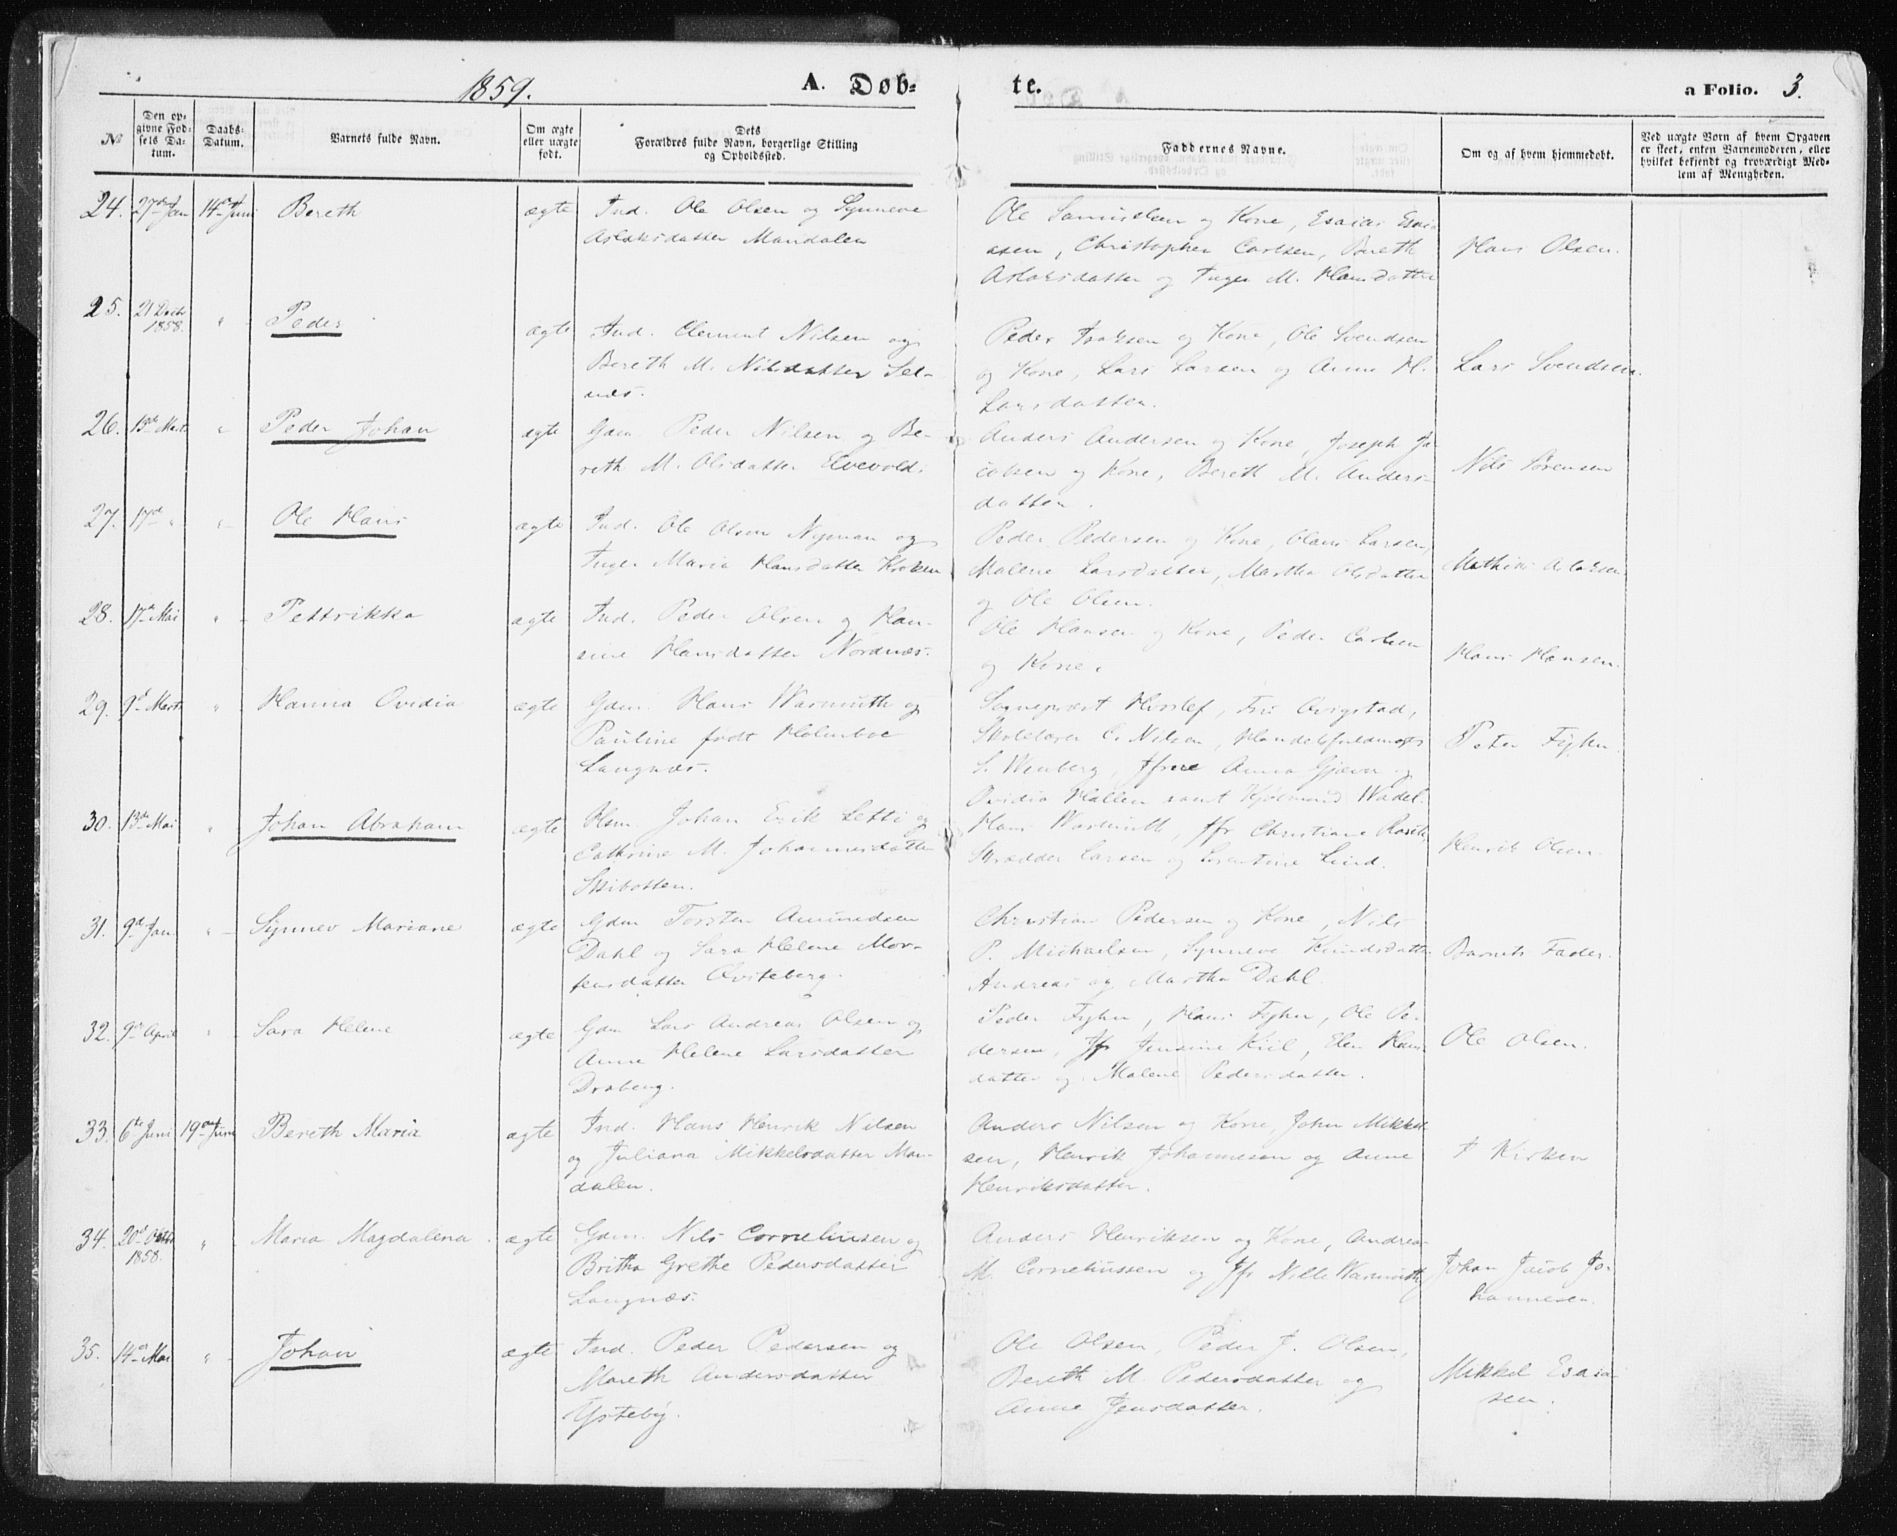 1859. A. Døb= te. a Folio. 3.
№
Den op=
givne Fød=
sels Da=
tum.
Daabs=
Datum.
Barnets fulde Navn.
Om ægte
eller uægte
født.
Dets
Forældres fulde Navn, borgerlige Stilling
og Opholdssted.
Faddernes Navne.
Om og af hvem hjemmedøbt.
Ved uægte Børn af hvem Opgaven
er skeet, enten Barnemoderen, eller
hvilket bekjendt og troværdigt Med=
lem af Menigheden.
24. 27de Jan 14de Juni Bereth ægte Ind. Ole Olsen og Synneve
Aslaksdatter Mandalen
Ole Samuelsen og Kone, Esaias Esai-
asen, Christopher Carlsen, Bereth
Aslaksdatter og Inger M. Hansdatter
Hans Olsen.
25. 21 Decbr
1858. " Peder ægte Ind. Clement Nilsen og
Bereth M. Nilsdatter Sel-
næs.
Peder Isaksen og Kone, Ole Svendsen
og Kone, Lars Larsen og Anne M.
Larsdatter.
Lars Svendsen.
26. 15de Marts " Peder Johan ægte Gdm. Peder Nilsen og Be-
reth M. Olsdatter Elvevold.
Anders Andersen og Kone, Joseph Ja-
cobsen og Kone, Bereth M. Anders-
datter.
Nils Sørensen
27. 17de " " Ole Hans ægte Ind. Ole Olsen Nyman og
Inger Maria Hansdatter Kroken
Peder Pedersen og Kone, Claus Larsen,
Malene Larsdatter, Martha Olsdatter
og Ole Olsen.
Mathias Aslaksen
28. 17de Mai " Pettrikka ægte Ind. Peder Olsen og Han-
sine Hansdatter Nordnæs.
Ole Hansen og Kone, Peder Carlsen
og Kone.
Hans Hansen.
29. 9de Marts " Hanna Ovidia ægte Gdm. Hans Warmuth og
Pauline født Holmboe
Langnæs.
Sognepræst Hvoslef, Fru Qvigstad,
Skolelærer C. Nilsen, Handelsfuldmægt
S. Wenberg, Jfrue Anna Gjæver og
Ovidia Hallen samt Hjølmund Wadel.
Peter Fyhn.
30. 13de Mai " Johan Abraham ægte Hsm. Johan Erik Letti og
Cathrine M. Johannesdatter
Skibotten.
Hans Warmuth, Jfr Christiane Rasch,
Skrædder Larsen og Lorentine Lund.
Henrik Olsen.
31. 9de Jan. " Synnev Mariane ægte Gdm Torsten Amundsen
Dahl og Sara Helene Mor-
tensdatter Qviteberg.
Christian Pedersen og Kone, Nils
P. Michaelsen, Synneve Knudsdatter
Andreas og Martha Dahl.
Barnets Fader.
32. 9de April " Sara Helene ægte Gdm Lars Andreas Olsen og
Anne Helene Larsdatter
Draberg.
Peder Fyhn, Hans Fyhn, Ole Pe-
dersen, Jfr Jensine Kiil, Elen Hans-
datter og Malene Pedersdatter.
Ole Olsen.
33. 6te Juni 19de Juni Bereth Maria ægte Ind. Hans Henrik Nilsen
og Juliana Mikkelsdatter Man-
dalen.
Anders Nilsen og Kone, John Mikkel-
sen, Henrik Johannesen og Anne
Henriksdatter.
I Kirken
34. 20de Octbr
1858. " Maria Magdalena ægte Gdm. Nils Corneliusen og
Britha Grethe Pedersdatter
Langnæs.
Anders Henriksen og Kone, Andreas
M. Corneliussen og Jfr Nille Warmuth
Johan Jacob Jo-
hannesen.
35. 14de Mai " Johan ægte Ind. Peder Pedersen og
Mareth Andersdatter
Ysteby.
Ole Olsen, Peder J. Olsen,
Bereth M. Pedersdatter og
Anne Jensdatter.
Mikkel Esaia-
sen.